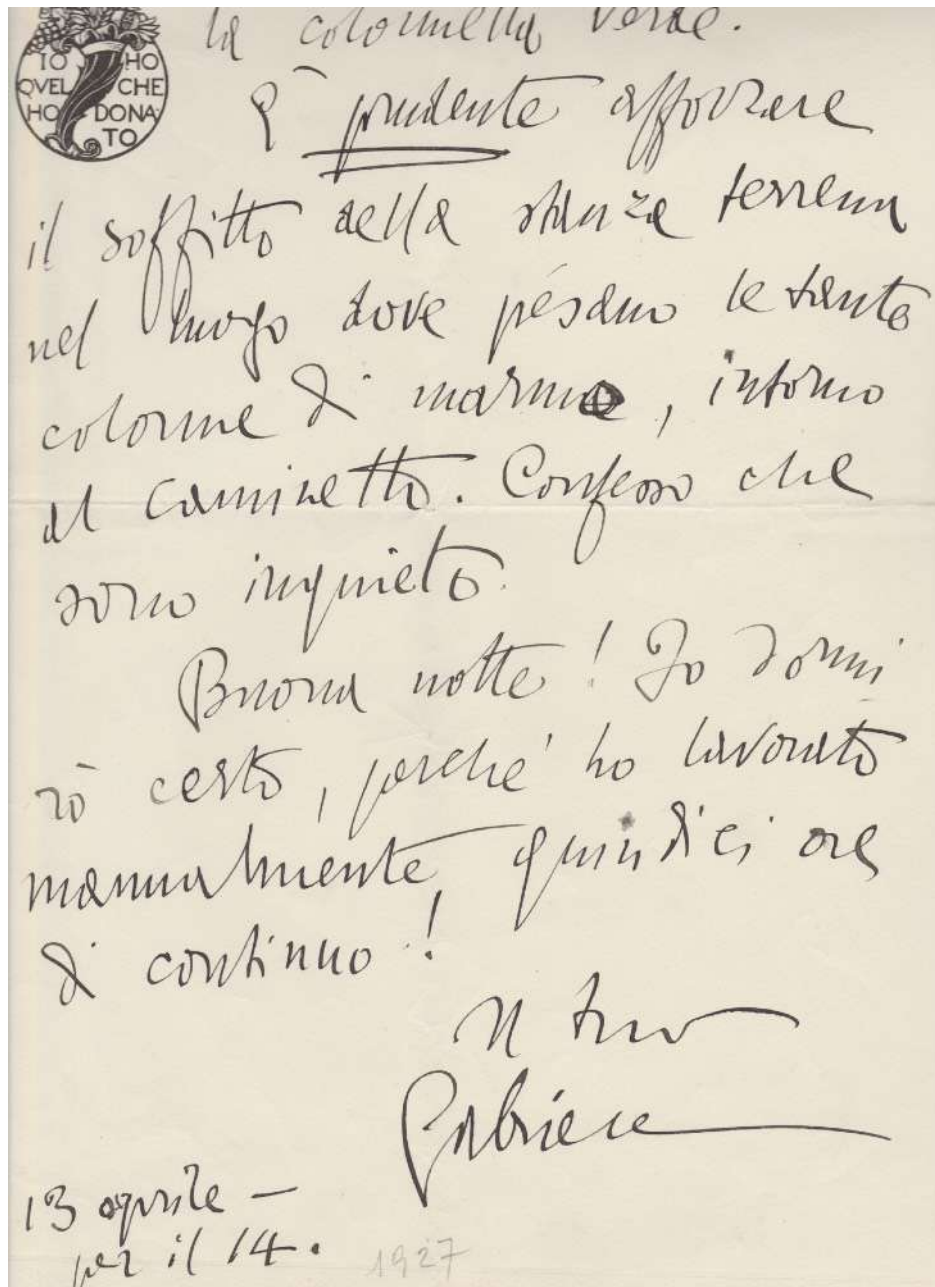 la colonnella verde.
IO HO
QVEL CHE
HO DONA
TO
È prudente afforzare
il soffitto della stanza terrena
nel luogo dove pésano le tante
colonne di marmo, intorno
al caminetto. Confesso che
sono inquieto.
Buona notte! Io dormi
rò certo, perché ho lavorato
manualmente, quindici ore
di continuo!
Il tuo
Gabriele
13 aprile —
per il 14.
1927